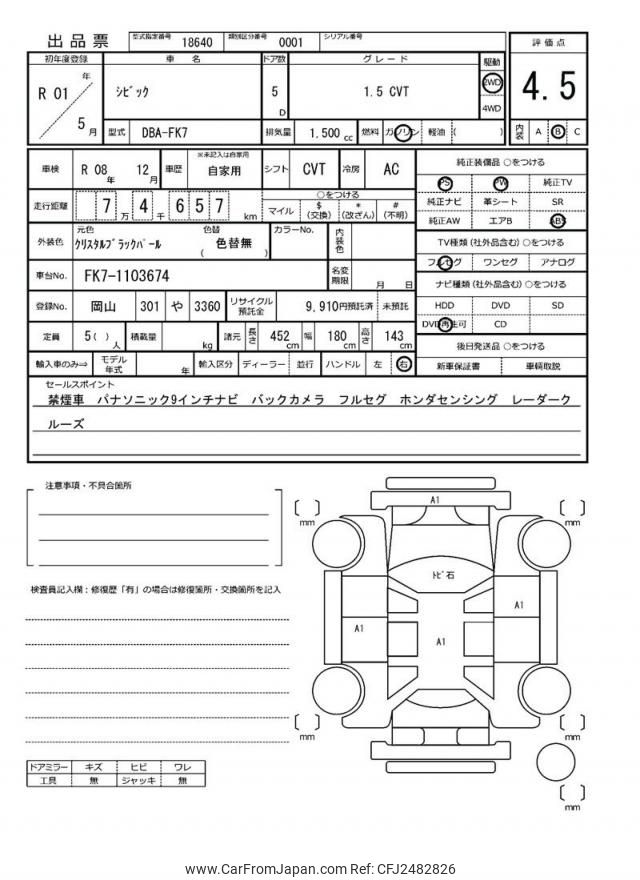 出品票
型式指定番号 18640 類別区分番号 0001 シリアル番号
初年度登録 車 名 ドア数 グレード 駆動 評価点
R 01 年 5 月
ｼﾋﾞｯｸ 5 D 1.5 CVT 2WD 4WD
4.5
型式 DBA-FK7 排気量 1.500 cc 燃料 ガソリン 軽油 ( ) 内装 A B C
車検 R 08 年 12 月 車歴 ※未記入は自家用 自家用 シフト CVT 冷房 AC
純正装備品 ○をつける
PS PW 純正TV
走行距離 7 万 4 千 6 5 7 km
○をつける
マイル $ (交換) * (改ざん) # (不明)
純正ナビ 革シート SR
純正AW エアB ABS
外装色 元色 ｸﾘｽﾀﾙﾌﾞﾗｯｸﾊﾟｰﾙ 色替 ( 色替無 ) カラーNo. 内装色
TV種類 (社外品含む) ○をつける
フルセグ ワンセグ アナログ
車台No. FK7-1103674 名変期限 月 日
ナビ種類 (社外品含む) ○をつける
登録No. 岡山 301 や 3360 リサイクル預託金 9,910円預託済 未預託
HDD DVD SD
DVD再生可 CD
定員 5( ) 人 積載量 kg 諸元 長さ 452 cm 幅 180 cm 高さ 143 cm
後日発送品 ○をつける
輸入車のみ⇒ モデル年式 年 輸入区分 ディーラー 並行 ハンドル 左 右
新車保証書 車輌取説
セールスポイント
禁煙車 パナソニック9インチナビ バックカメラ フルセグ ホンダセンシング レーダーク
ルーズ
注意事項・不具合箇所
検査員記入欄：修復歴「有」の場合は修復箇所・交換箇所を記入
A1
mm
mm
ﾄﾋﾞ石
A1
A1
A1
mm
mm
mm
ドアミラー キズ ヒビ ワレ
工具 無 ジャッキ 無
www.CarFromJapan.com Ref: CFJ2482826